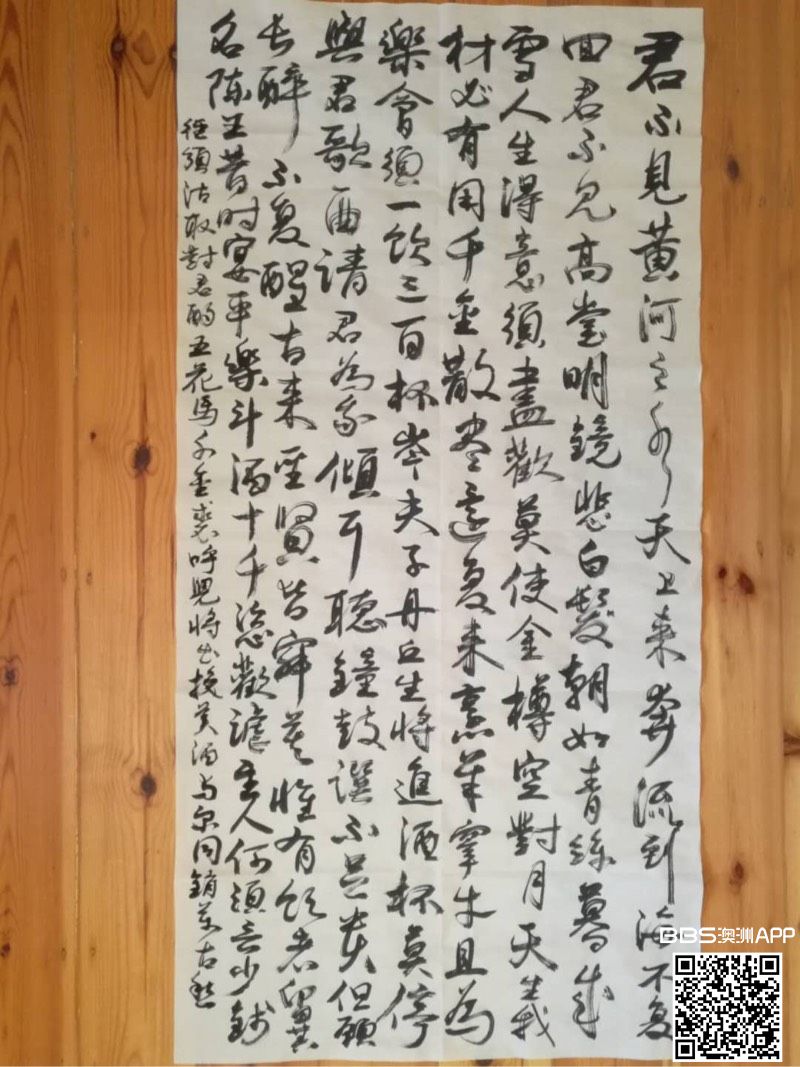 君不見黄河之水天上来奔流到海不复
回君不见高堂明鏡悲白髮朝如青絲暮成
雪人生得意須盡歡莫使金樽空對月天生我
材必有用千金散尽還复来烹羊宰牛且為
樂會須一飲三百杯岑夫子丹丘生将進酒杯莫停
與君歌一曲請君為我傾耳聴鐘鼓饌不足贵但願
长醉不复醒古来聖賢皆寂寞惟有飲者留其
名陈王昔时宴平樂斗酒十千恣歡謔主人何須言少錢
徑須沽取對君酌五花馬千金裘呼兒将出换美酒与尔同銷萬古愁
BBS澳洲APP